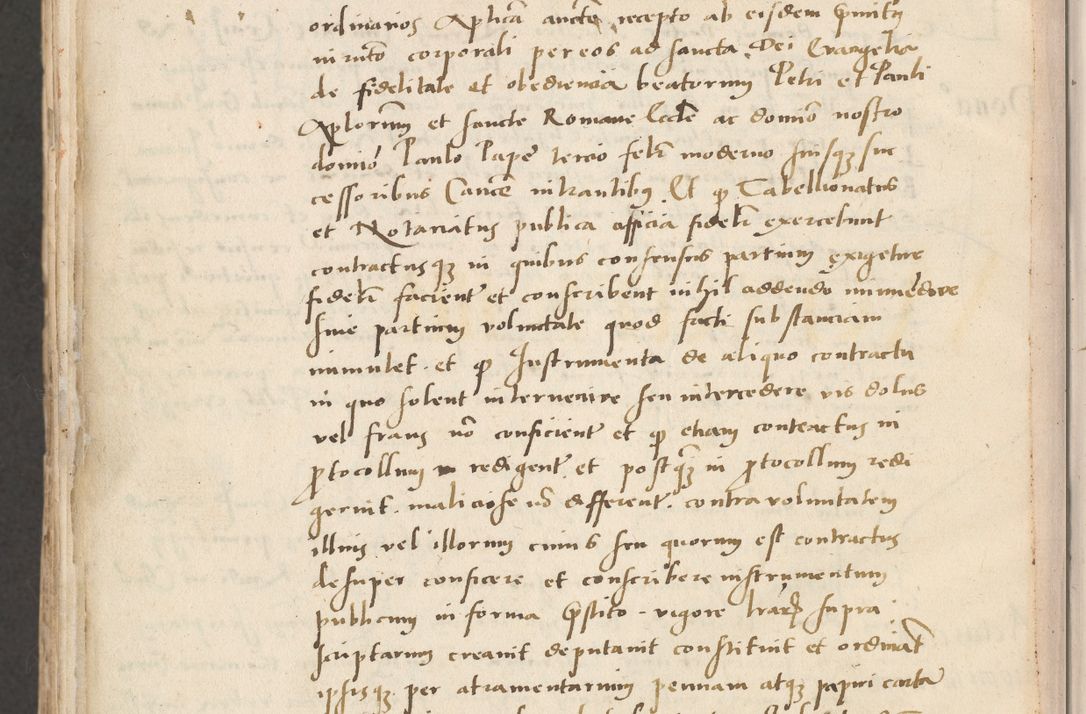 ordinarios Aplica aucte recepto ab eisdem prmitus
iuramto corporali per eos ad sancta Dei Evangelia
de fidelitate et obediencia beatorum Petri et Pauli
Aplorum et sancte Romane Eccle ac domio nostro
domio Paulo Pape tercio feli moderno suisq suc
cessoribus Canoce intrantibus Et q Tabellionatus
et Notariatus publica officia fideli exercebunt
contractusq in quibus consensus partium exigetur
fideli facient et conscribent nihil addendo minuedove
sine partium voluntate quod facti substanciam
inmutet et q Instrumenta de aliquo contractu
in quo solent intervenire seu intercedere vis dolus
vel fraus no conficient et q etiam contractus in
protocollum redigent et postqm in protocollum redi
gerint maliciose no different contra voluntatem
illius vel illorum cuius seu quorum est contractus
desuper conficere et conscribere instrumentum
publicum in forma prestito vigore lrarum supra
scriptarum creavit deputavit constituit et ordinat
ipsisq per atramentarium pennam atq papiri carta